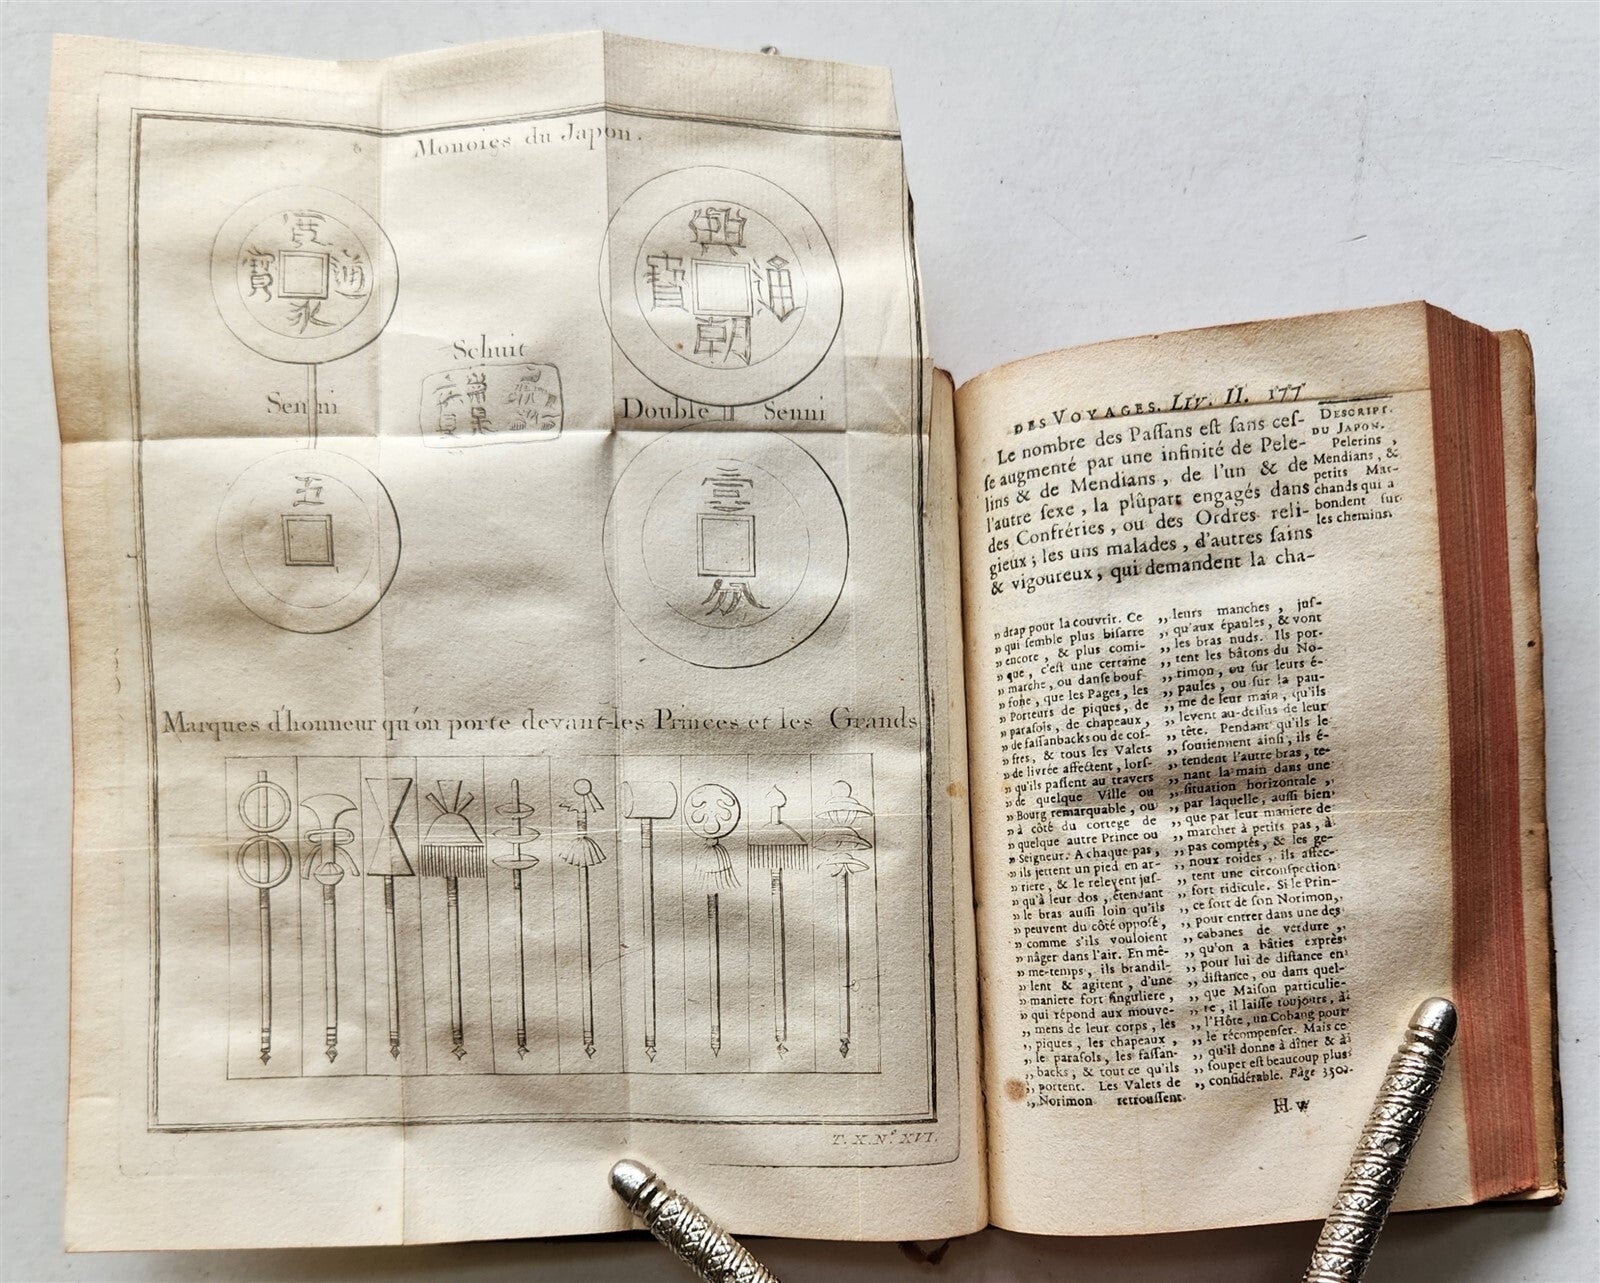 Monoies du Japon.
寛
寳 通
永
興
寶 通
朝
Schuit
Senni
Double Senni
五
壹
分
Marques d'honneur qu'on porte devant les Princes et les Grands
T. X. N.º XVI.
DES VOYAGES. LIV. II. 177
Le nombre des Paſſans eſt ſans ceſ-
ſe augmenté par une infinité de Pele-
lins & de Mendians, de l'un & de
l'autre ſexe, la plûpart engagés dans
des Confréries, ou des Ordres reli-
gieux; les uns malades, d'autres ſains
& vigoureux, qui demandent la cha-
DESCRIPT.
DU JAPON.
Pelerins,
Mendians, &
petits Mar-
chands qui a
bondent ſur
les chemins.
„ drap pour la couvrir. Ce
„ qui ſemble plus biſarre
„ encore, & plus comi-
„ que, c'eſt une certaine
„ marche, ou danſe bouf-
„ fone, que les Pages, les
„ Porteurs de piques, de
„ paraſols, de chapeaux,
„ de faſſanbacks ou de cof-
„ fres, & tous les Valets
„ de livrée affectent, lorſ-
„ qu'ils paſſent au travers
„ de quelque Ville ou
„ Bourg remarquable, ou
„ à côté du cortege de
„ quelque autre Prince ou
„ Seigneur. A chaque pas,
„ ils jettent un pied en ar-
„ riere, & le relevent juſ-
„ qu'à leur dos, étendant
„ le bras auſſi loin qu'ils
„ peuvent du côté oppoſé,
„ comme s'ils vouloient
„ nâger dans l'air. En mê-
„ me-temps, ils brandil-
„ lent & agitent, d'une
„ maniere fort ſinguliere,
„ qui répond aux mouve-
„ mens de leur corps, les
„ piques, les chapeaux,
„ les paraſols, les faſſan-
„ backs, & tout ce qu'ils
„ portent. Les Valets de
„ Norimon retrouſſent
„ leurs manches, juſ-
„ qu'aux épaules, & vont
„ les bras nuds. Ils por-
„ tent les bâtons du No-
„ rimon, ou ſur leurs é-
„ paules, ou ſur la pau-
„ me de leur main, qu'ils
„ levent au-deſſus de leur
„ tête. Pendant qu'ils le
„ ſoutiennent ainſi, ils é-
„ tendent l'autre bras, te-
„ nant la main dans une
„ ſituation horizontale,
„ par laquelle, auſſi bien
„ que par leur maniere de
„ marcher à petits pas, à
„ pas comptés, & les ge-
„ noux roides, ils affec-
„ tent une circonſpection
„ fort ridicule. Si le Prin-
„ ce ſort de ſon Norimon,
„ pour entrer dans une des
„ cabanes de verdure,
„ qu'on a bâties exprès
„ pour lui de diſtance en
„ diſtance, ou dans quel-
„ que Maiſon particulie-
„ re, il laiſſe toujours, à
„ l'Hôte, un Cobang pour
„ le récompenſer. Mais ce
„ qu'il donne à dîner & à
„ ſouper eſt beaucoup plus
„ conſidérable. Page 350.
H v